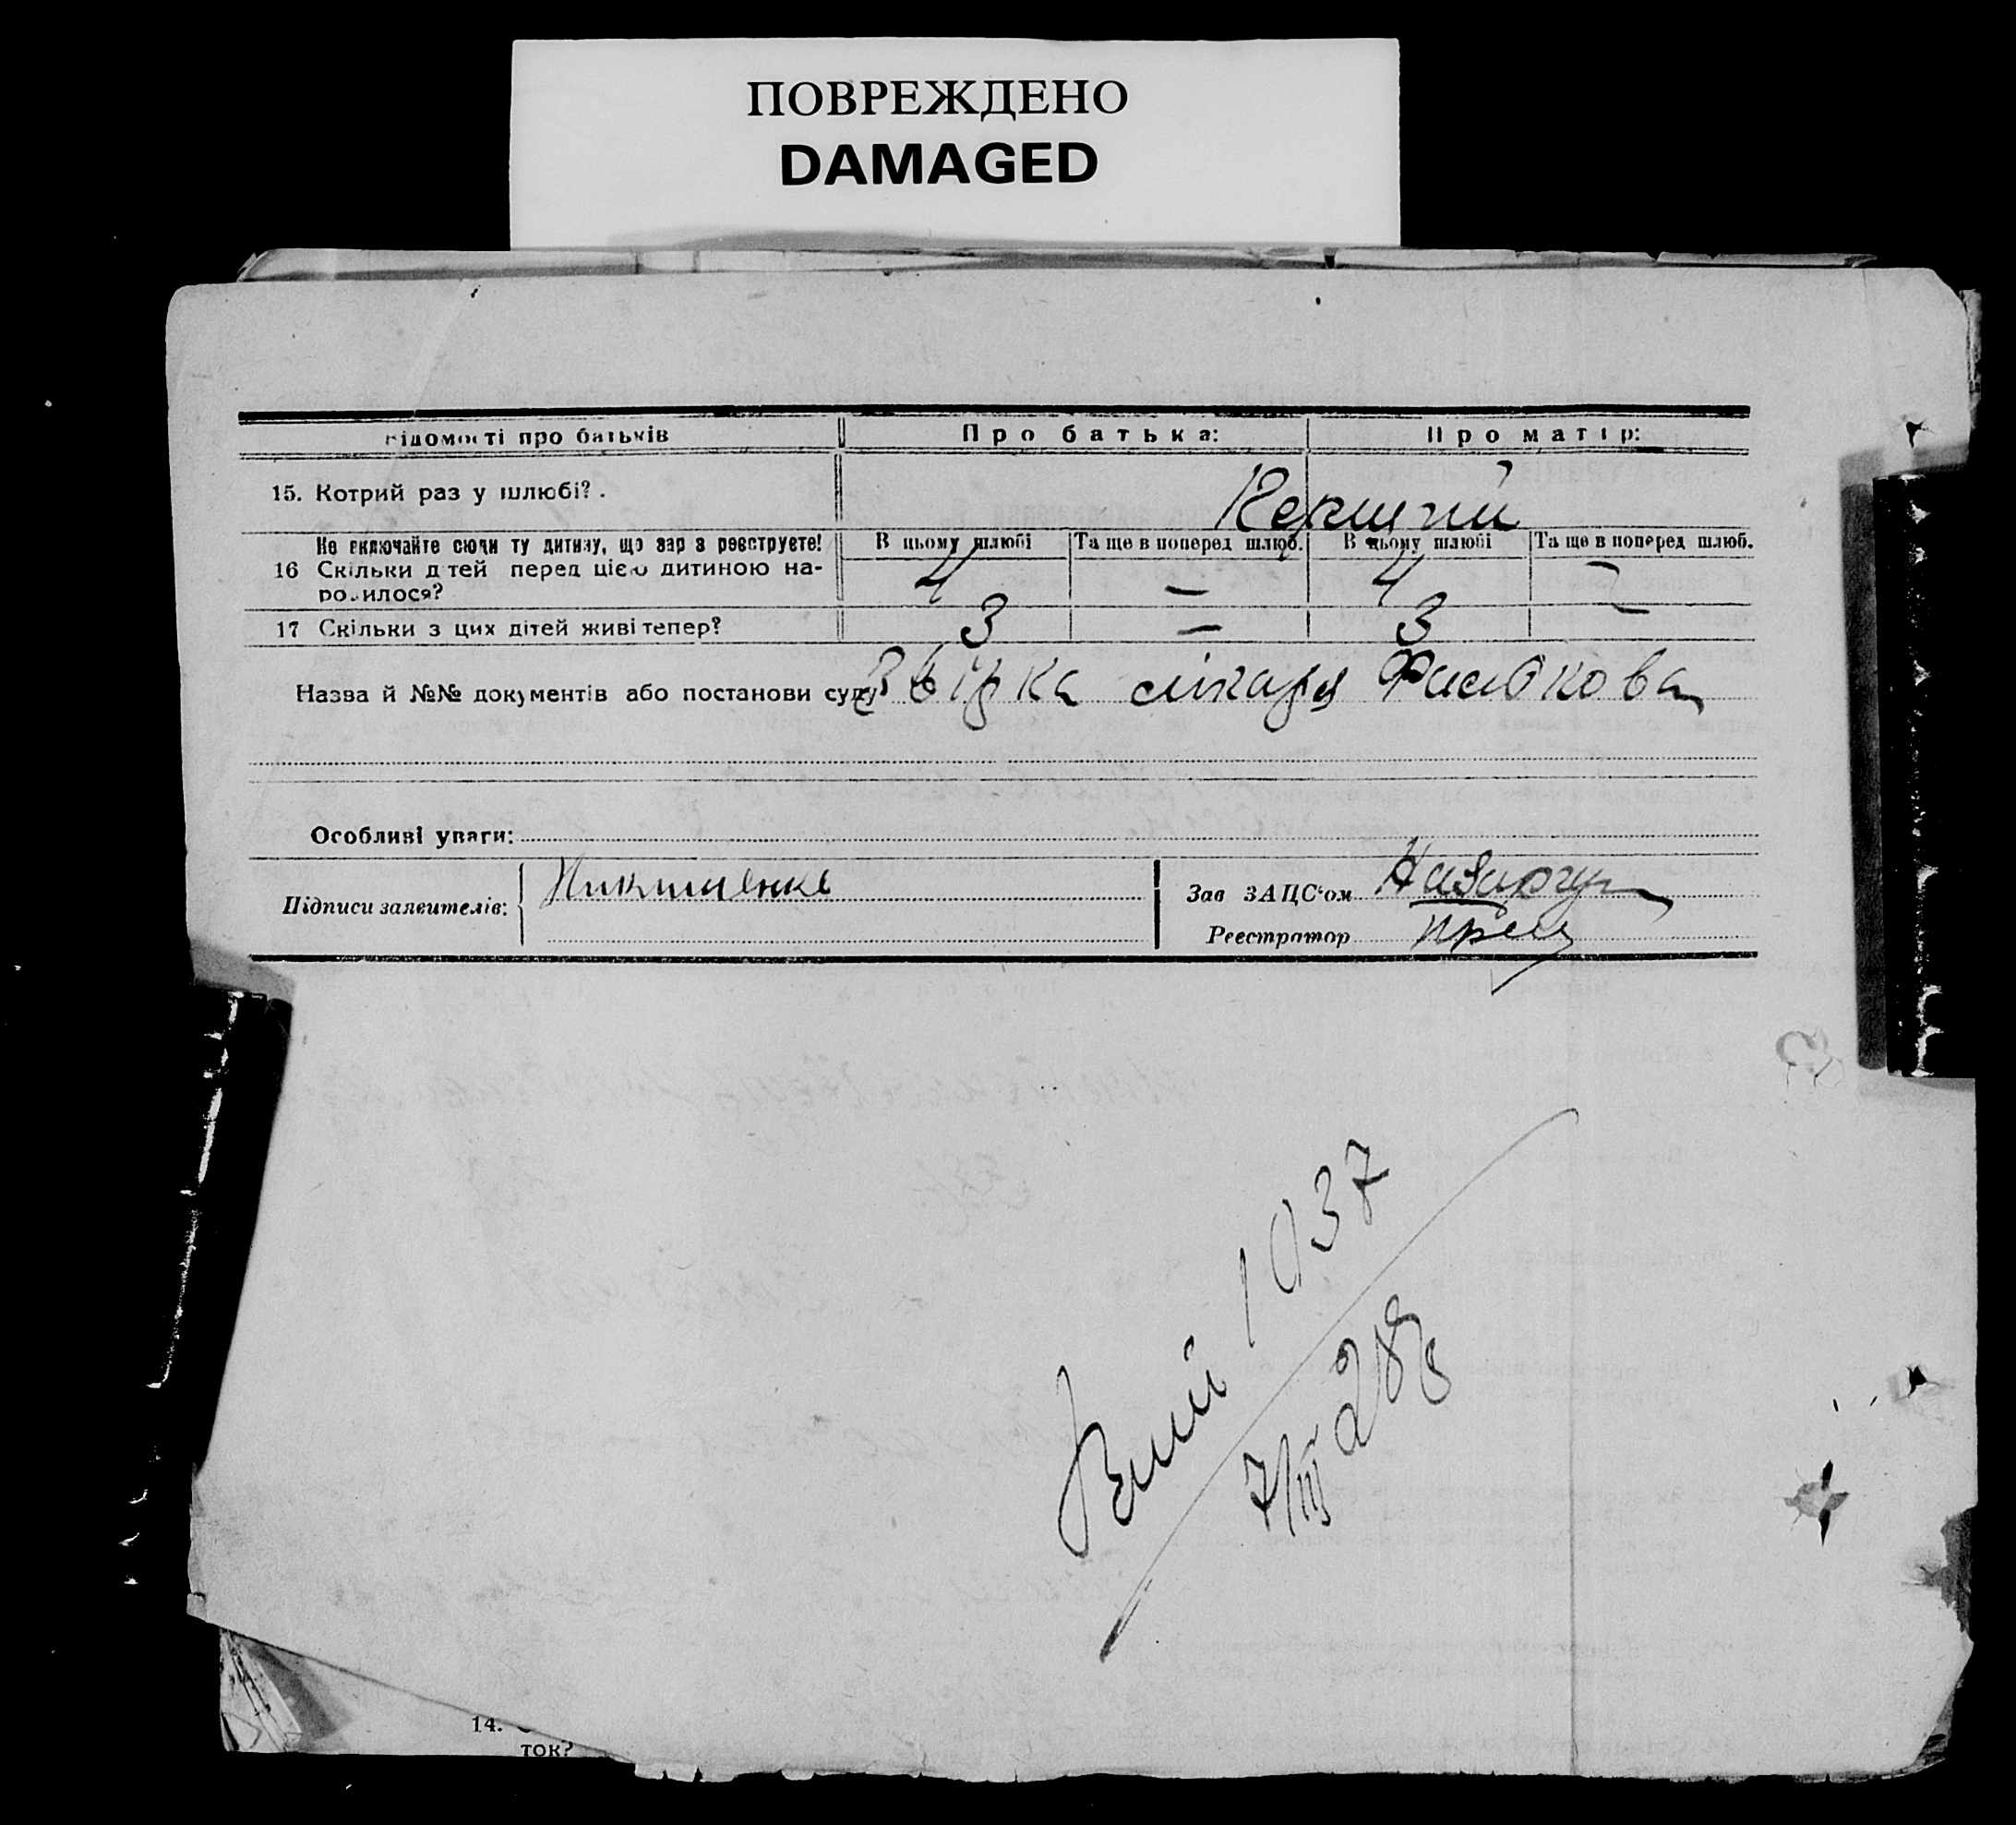 ПОВРЕЖДЕНО
DAMAGED
відомості про батьків
Про батька:
Про матір:
15. Котрий раз у шлюбі? .
Перший
Не включайте сюди ту дитину, що зараз реєструєте!
В цьому шлюбі
Та ще в поперед шлюб.
В цьому шлюбі
Та ще в поперед шлюб.
16 Скільки дітей перед цією дитиною на-
родилося?
4 — 4 —
17 Скільки з цих дітей живі тепер?
3 — 3 —
Назва й №№ документів або постанови суду
лікаря
Особливі уваги:
Підписи заявителів:
Зав ЗАЦС'ом
Реєстратор
1037
7/III 28
14.
ток?